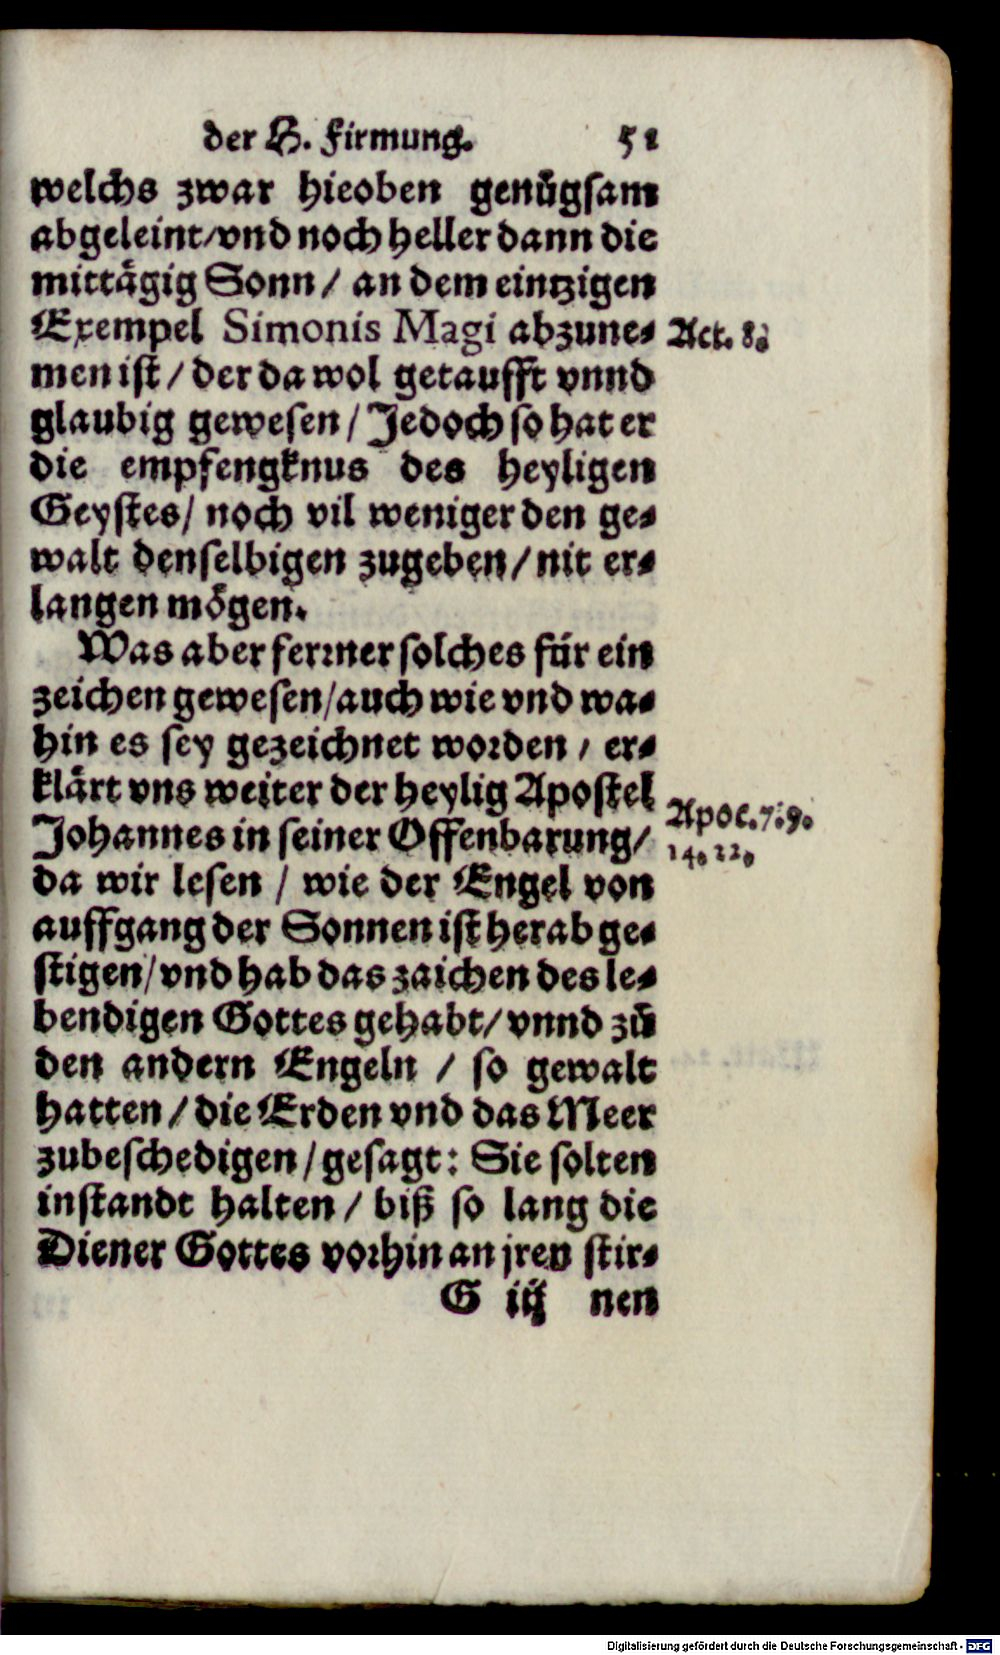 der H. Firmung. 51
welchs zwar hieoben genůgsam
abgeleint/vnd noch heller dann die
mittägig Sonn/ an dem eintzigen
Exempel Simonis Magi abzune- Act. 8.
men ist/ der da wol getaufft vnnd
glaubig gewesen/ Jedoch so hat er
die empfengknus des heyligen
Geystes/ noch vil weniger den ge-
walt denselbigen zugeben/ nit er-
langen mögen.
Was aber ferrner solches für ein
zeichen gewesen/auch wie vnd wa-
hin es sey gezeichnet worden / er-
klärt vns weiter der heylig Apostel
Apoc. 7. 9.
Johannes in seiner Offenbarung/
14. 22.
da wir lesen / wie der Engel von
auffgang der Sonnen ist herab ge-
stigen/vnd hab das zaichen des le-
bendigen Gottes gehabt/ vnnd zů
den andern Engeln / so gewalt
hatten / die Erden vnd das Meer
zubeschedigen/ gesagt: Sie solten
instandt halten / biß so lang die
Diener Gottes vorhin an jren stir-
G iij nen
Digitalisierung gefördert durch die Deutsche Forschungsgemeinschaft - DFG